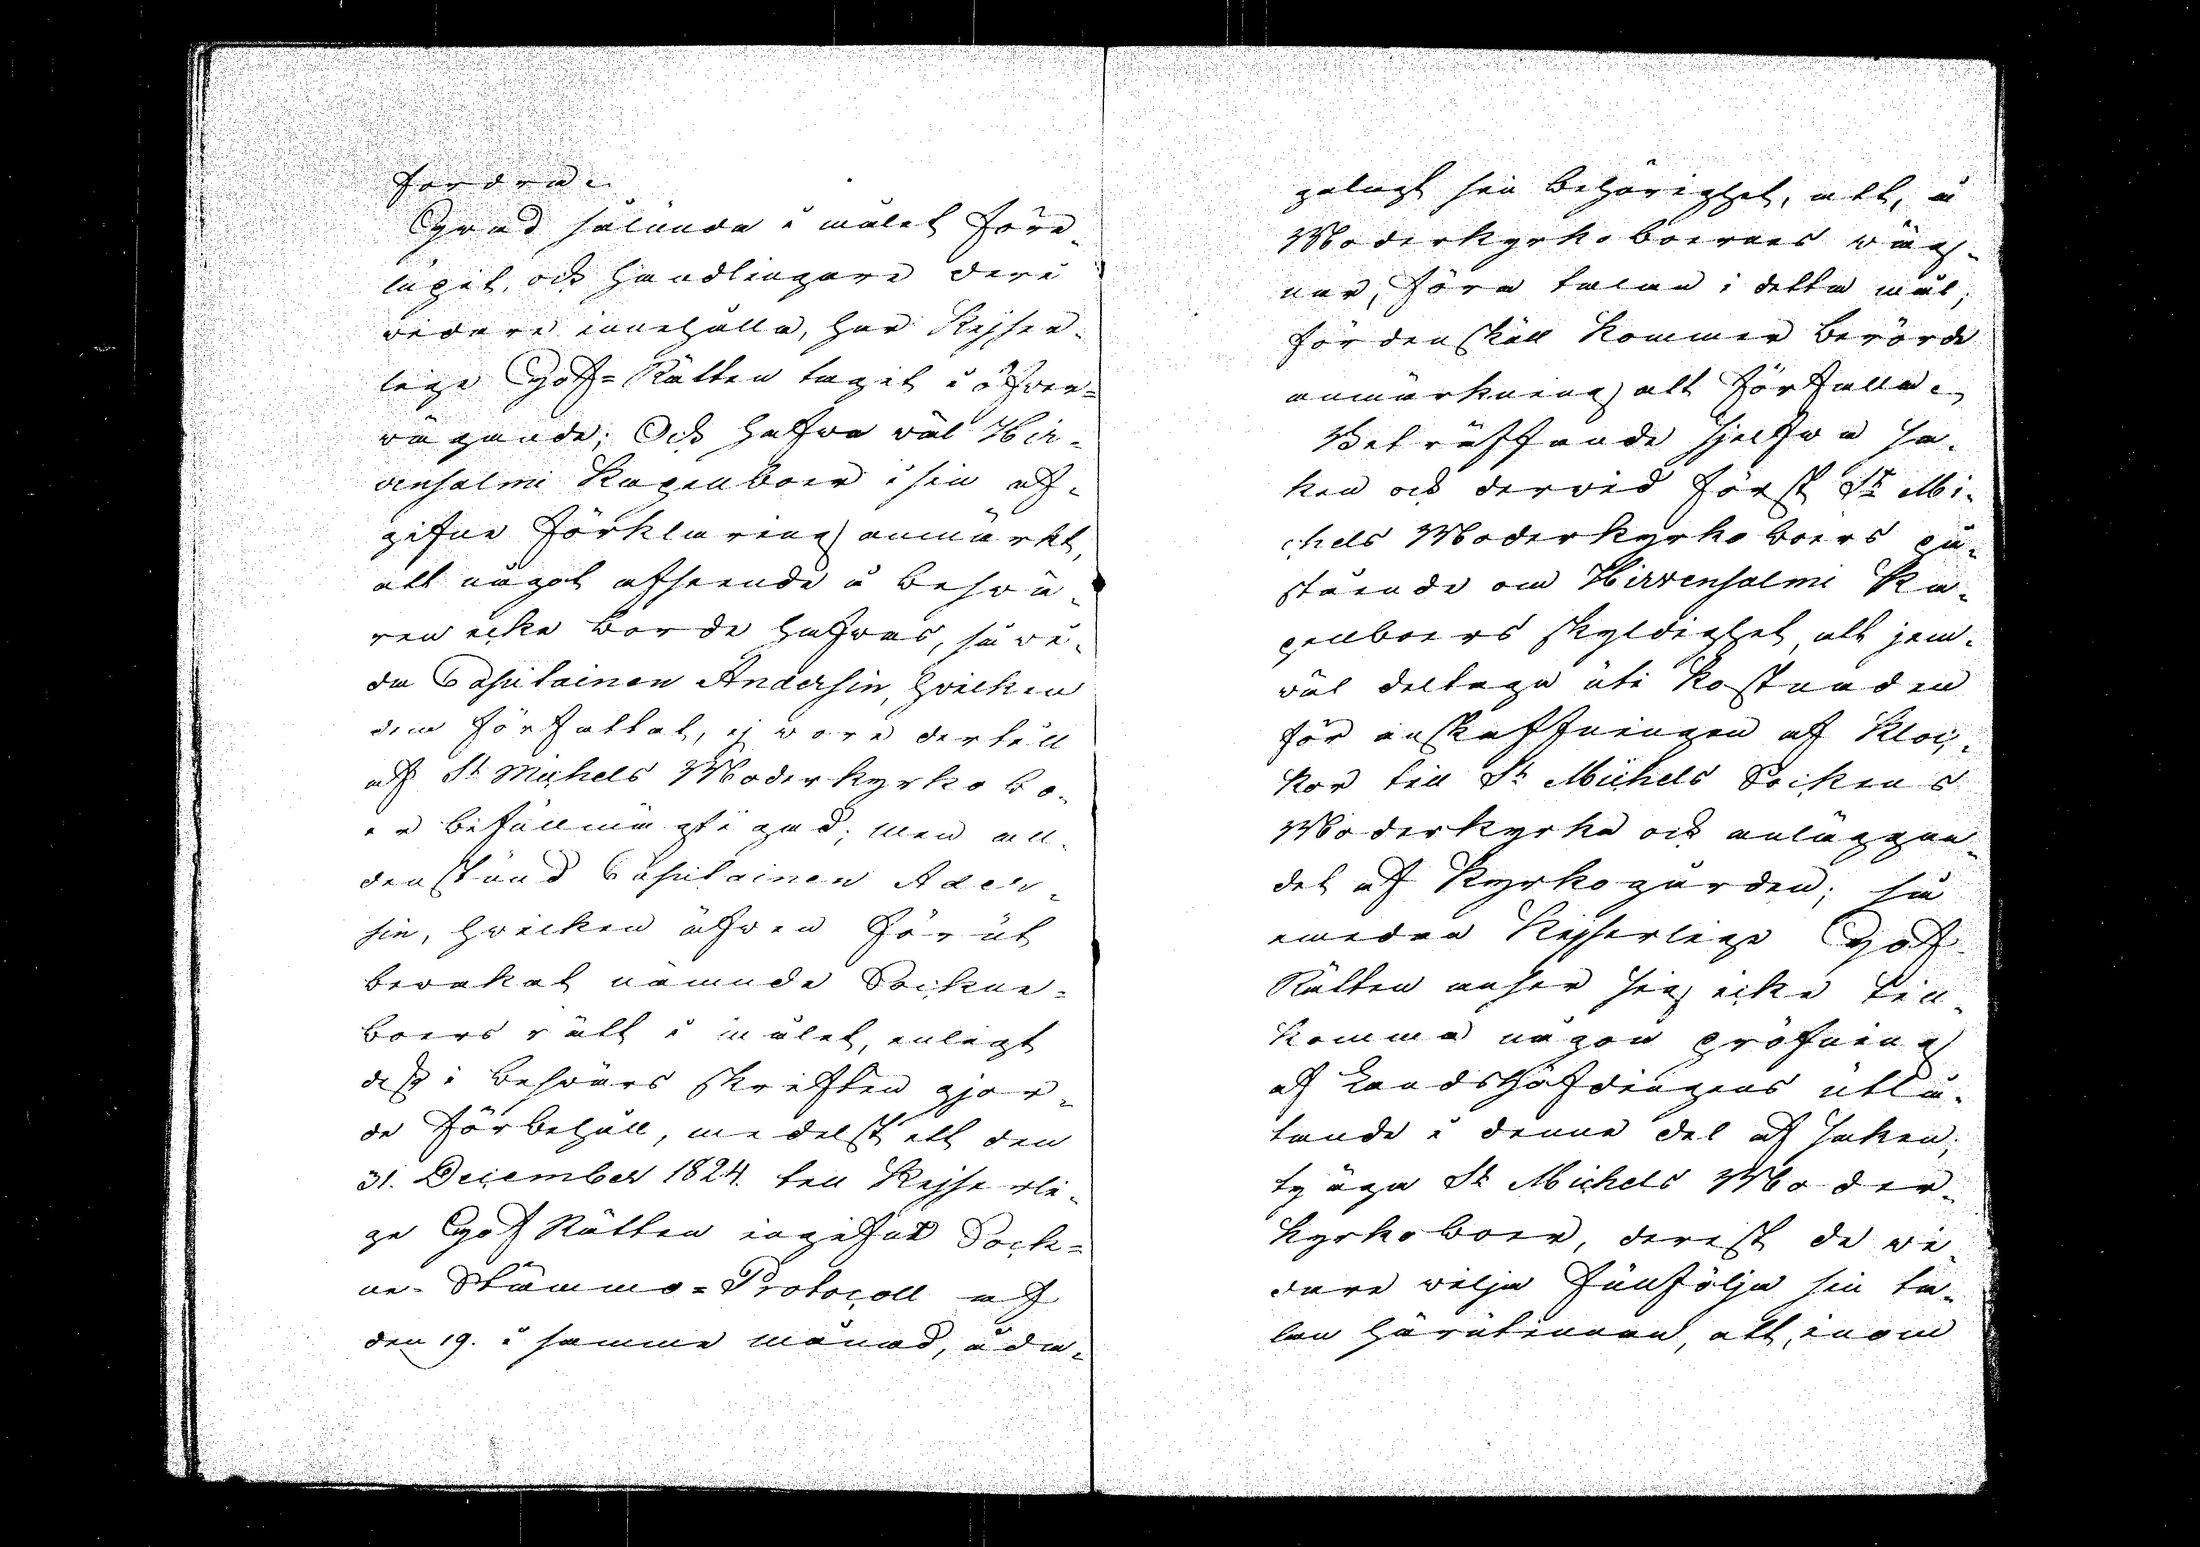 fordra.
Hwad sålunda i målet före¬
lupit, och handlingarne deri
widare innehålla, har Kejser¬
lige Hof-Rätten tagit i öfwer¬
wägande; Och hafwa wäl Hir¬
vensalmi Kapellboer i sin af¬
gifne förklaring anmärkt,
att något afseende å beswä¬
ren icke borde hafwas, så wi¬
da Capitainen Andersin, hwilken
dem författat, ej wore dertill
af St Michels Moderkyrkobo¬
er befullmägtigad; men all¬
denstund Capitainen Ander¬
sin, hwilken äfwen förut
bewakat nämnde Sockne¬
boers rätt i målet, enligt
dess i beswärs skriften gjor¬
de förbehåll, medelst ett den
31. December 1824. till Kejserli¬
ge Hof Rätten ingifwit Sock¬
ne-Stämmo-Protocoll af
den 19. i samme månad, åda¬
galagt sin behörighet, att, å
Moderkyrkoboernes wäg¬
nar, föra talan i detta mål;
fördenskull kommer berörde
anmärkning att förfalla.
Beträffande sjelfwa sa¬
ken och derwid först St Mi¬
chels Moderkyrkoboers på¬
stående om Hirvensalmi Ka¬
pellboers skyldighet, att jem¬
wäl deltaga uti kostnaden
för anskaffningen af Kloc¬
kor till St Michels Sockens
Moderkyrka och anläggan¬
det af Kyrkogården; så
emedan Kejserlige Hof
Rätten anser sig icke till¬
komma någon pröfning
af Landshöfdingens utlå¬
tande i denne del af saken;
ty äga St Michels Moder¬
kyrkoboer, derest de wi¬
dare wilja fullfölja sin ta¬
lan härutinnan, att, inom